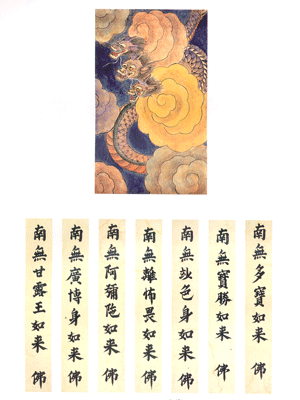 南無多寶如来 佛
南無寶勝如来 佛
南無妙色身如来 佛
南無離怖畏如来 佛
南無阿彌陀如来 佛
南無廣博身如来 佛
南無甘露王如来 佛